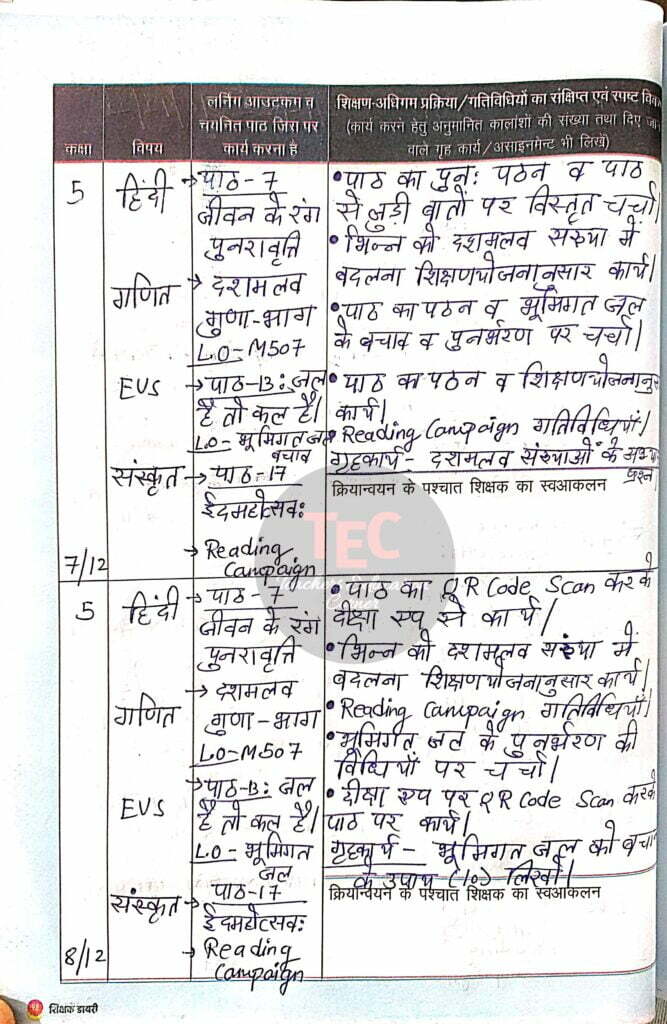 कक्षा
विषय
लर्निंग आउटकम व
चयनित पाठ जिस पर
कार्य करना है
शिक्षण-अधिगम प्रक्रिया/गतिविधियों का संक्षिप्त एवं स्पष्ट
(कार्य करने हेतु अनुमानित कालांशों की संख्या तथा दिए
वाले गृह कार्य/असाइनमेन्ट भी लिखें)
5
हिंदी
→ पाठ-7
जीवन के रंग
पुनरावृत्ति
गणित
→ दशमलव
गुणा-भाग
L.O-M507
EVS
→ पाठ-13: जल
है तो कल है।
L.O- भूमिगत जल
बचाव
संस्कृत
→ पाठ-17
ईदमहोत्सवः
→ Reading
Campaign
7/12
• पाठ का पुनः पठन व पाठ
से जुड़ी बातों पर विस्तृत चर्चा।
• भिन्न को दशमलव संख्या में
बदलना शिक्षणयोजनानुसार कार्य।
• पाठ का पठन व भूमिगत जल
के बचाव व पुनर्भरण पर चर्चा।
• पाठ का पठन व शिक्षणयोजनानुसार
कार्य।
Reading Campaign गतिविधियाँ।
गृहकार्य - दशमलव संख्याओं के
प्रश्न।
क्रियान्वयन के पश्चात शिक्षक का स्वआकलन
TEC
5
हिंदी
→ पाठ-7
जीवन के रंग
पुनरावृत्ति
गणित
→ दशमलव
गुणा-भाग
L.O-M507
EVS
→ पाठ-13: जल
है तो कल है।
L.O- भूमिगत
जल
संस्कृत
पाठ-17
ईदमहोत्सवः
→ Reading
Campaign
8/12
• पाठ का QR Code Scan करके
दीक्षा एप से कार्य।
• भिन्न को दशमलव संख्या में
बदलना शिक्षणयोजनानुसार कार्य।
• Reading Campaign गतिविधियाँ।
• भूमिगत जल के पुनर्भरण की
विधियों पर चर्चा।
• दीक्षा एप पर QR Code Scan करके
पाठ पर कार्य।
गृहकार्य - भूमिगत जल को
के उपाय (10) लिखो।
क्रियान्वयन के पश्चात शिक्षक का स्वआकलन
शिक्षक डायरी